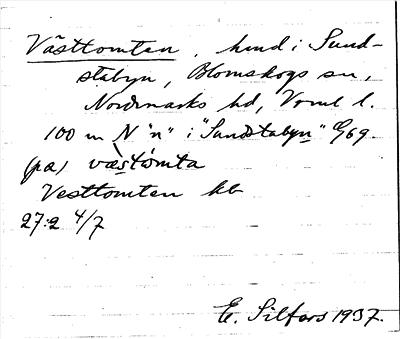 Västtomten, hmd i Sund-
stabyn, Blomskogs sn,
Nordmarks hd, Vrml l.
100 m N "n" i "Sundstabyn" G69.
(pa) væstòmta
Vesttomten kb
27:2 4/7
E. Silfors 1937.